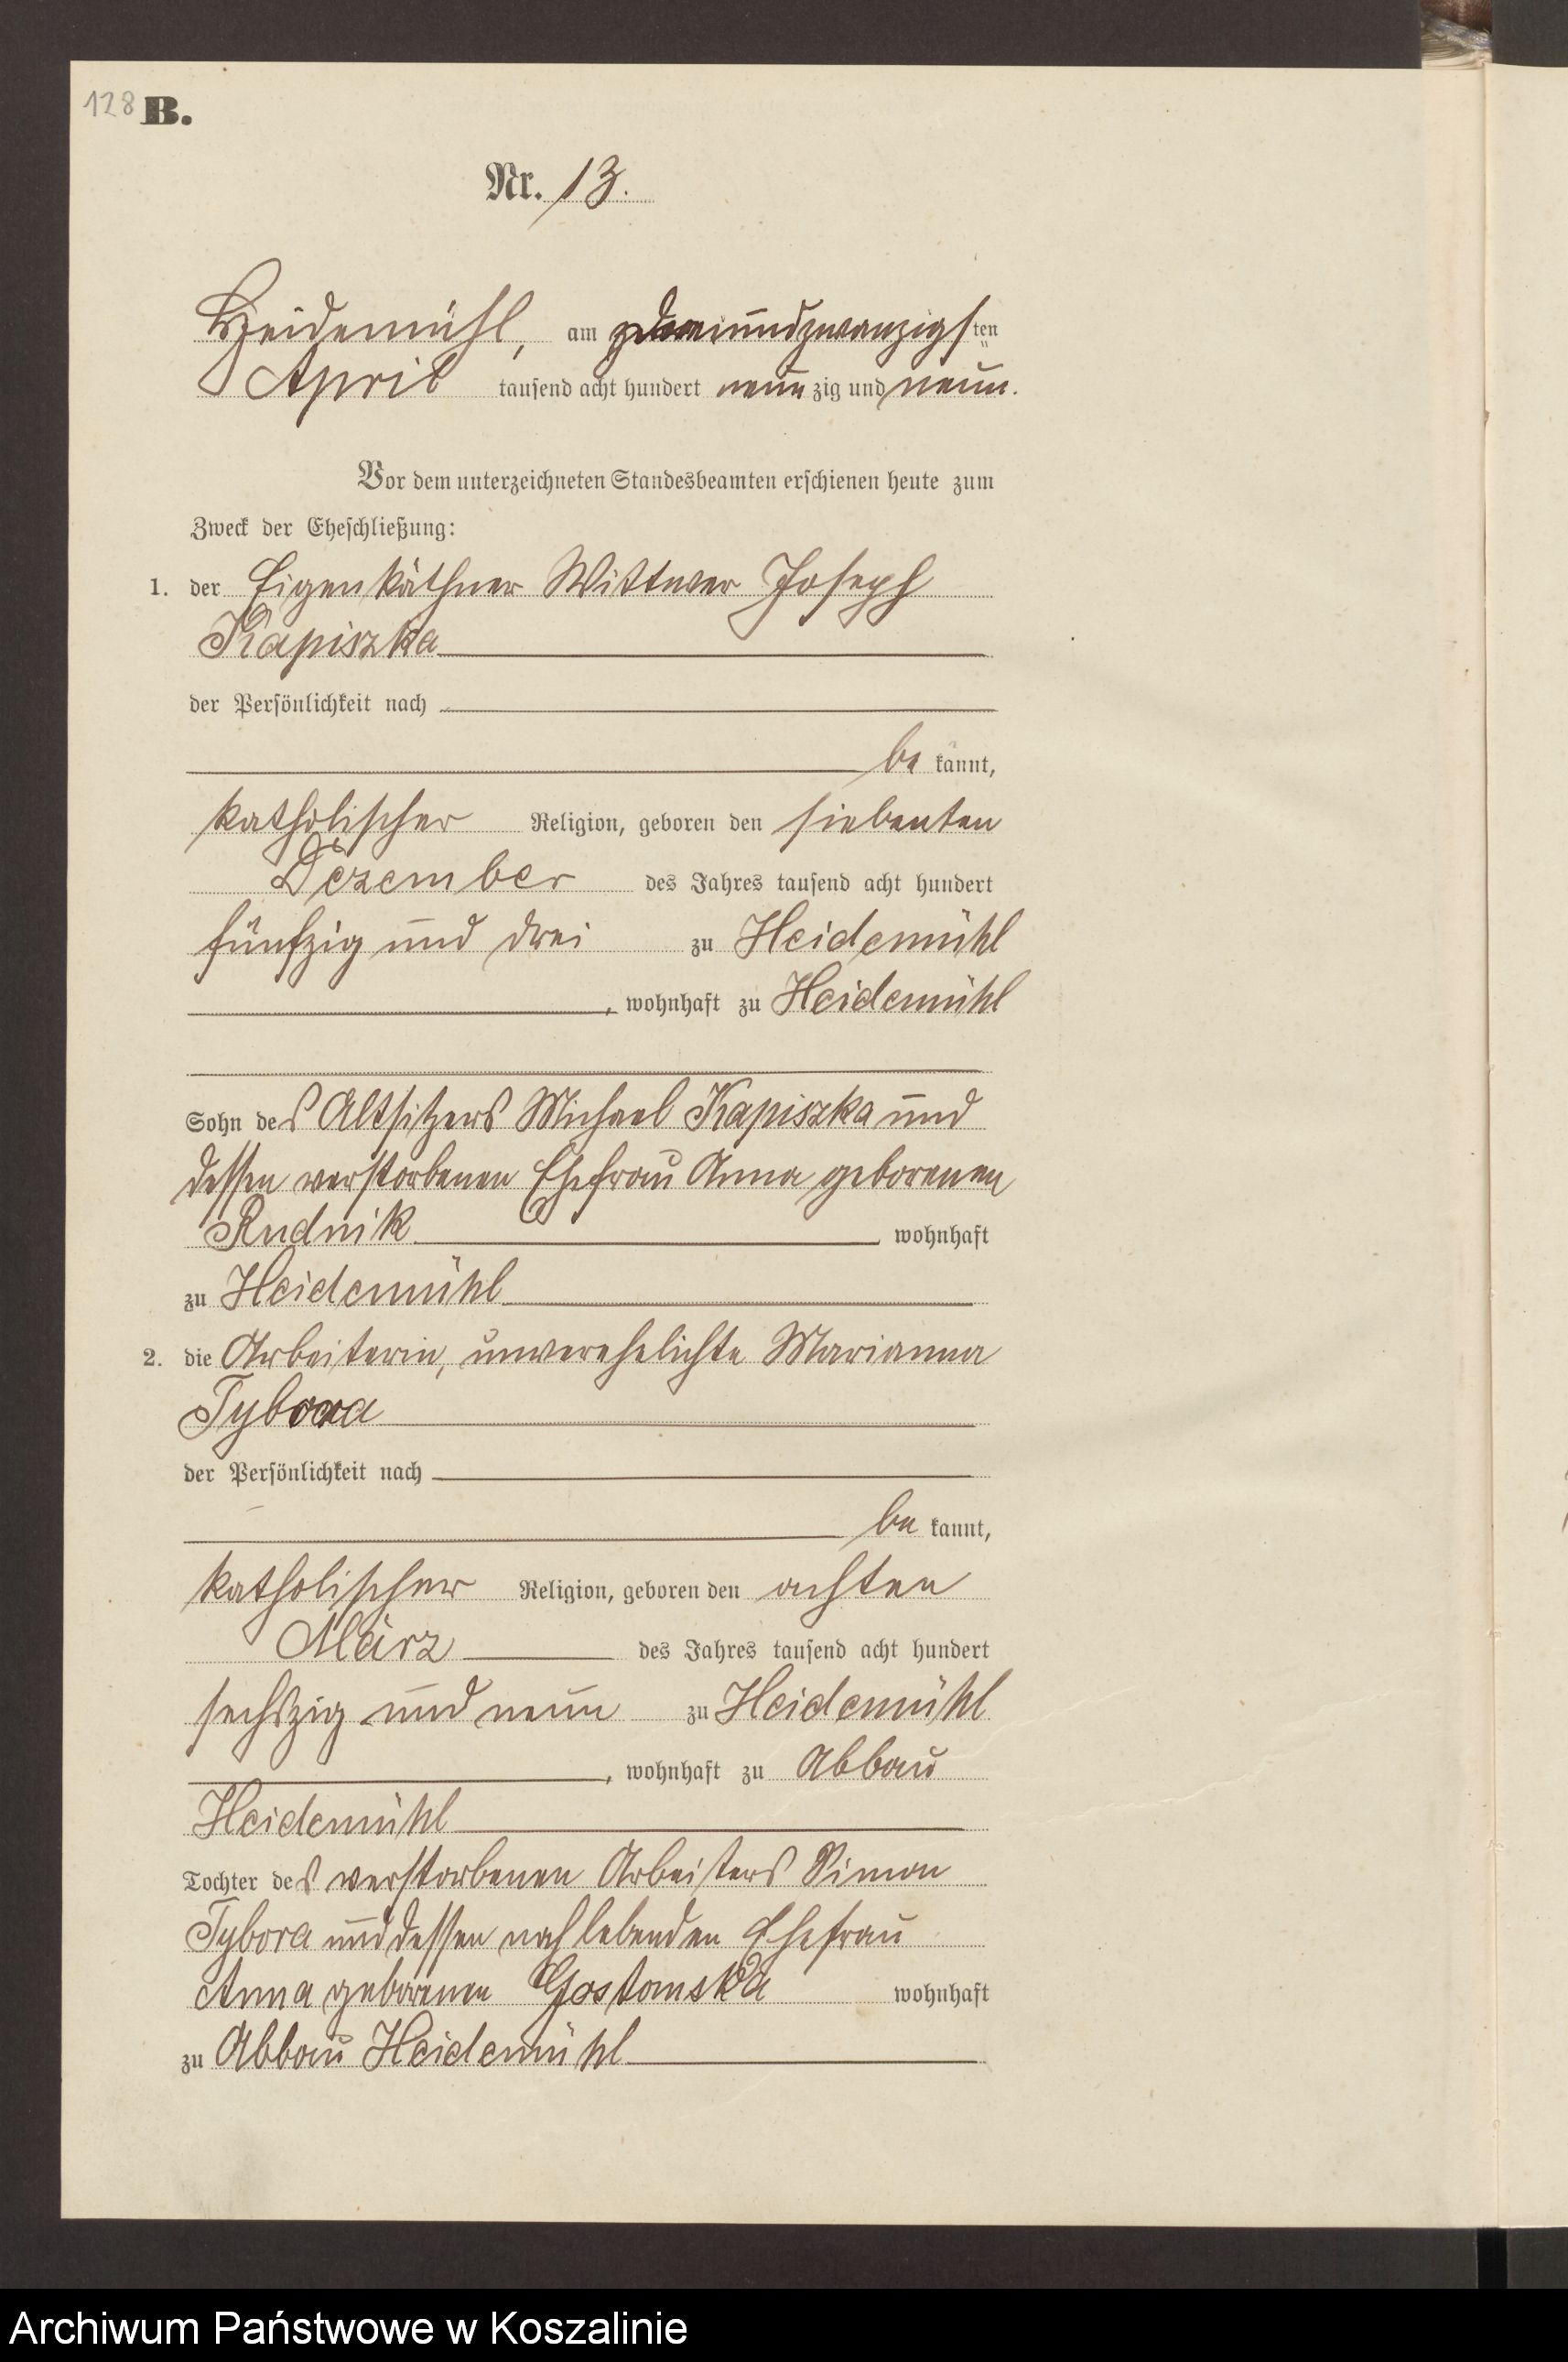 128 B.
Nr. 13.
Heidemühl, am dreiundzwanzigsten
April tausend acht hundert neunzig und neun.
Vor dem unterzeichneten Standesbeamten erschienen heute zum
Zweck der Eheschließung:
1. der Eigenkäthner Wittwer Joseph
Kapiszka
der Persönlichkeit nach
be kannt,
katholischer Religion, geboren den siebenten
Dezember des Jahres tausend acht hundert
fünfzig und drei zu Heidemühl
, wohnhaft zu Heidemühl
Sohn des Altsitzers Michael Kapiszka und
dessen verstorbenen Ehefrau Anna geborenen
Rudnik wohnhaft
zu Heidemühl
2. die Arbeiterin, unverehelichte Marianna
Tybora
der Persönlichkeit nach
be kannt,
katholischer Religion, geboren den achten
März des Jahres tausend acht hundert
sechszig und neun zu Heidemühl
, wohnhaft zu Abbau
Heidemühl
Tochter des verstorbenen Arbeiters Simon
Tybora und dessen noch lebenden Ehefrau
Anna geborenen Gostomska wohnhaft
zu Abbau Heidemühl
Archiwum Państwowe w Koszalinie